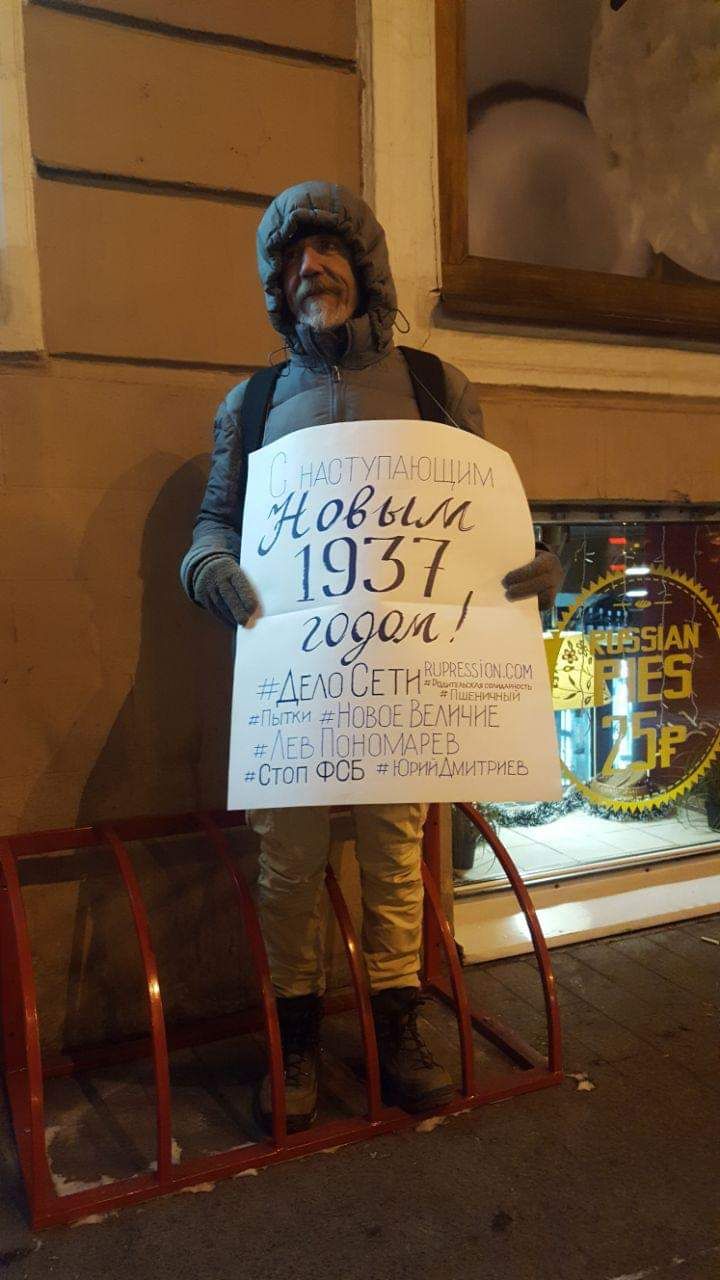 С НАСТУПАЮЩИМ
Новым
1937
годом!
#ДЕЛО СЕТИ
RUPRESSION.COM
#Родительская солидарность
#Пшеничный
#Пытки #НОВОЕ ВЕЛИЧИЕ
#ЛЕВ ПОНОМАРЕВ
#СТОП ФСБ #ЮРИЙ ДМИТРИЕВ
RUSSIAN
PIES
75₽